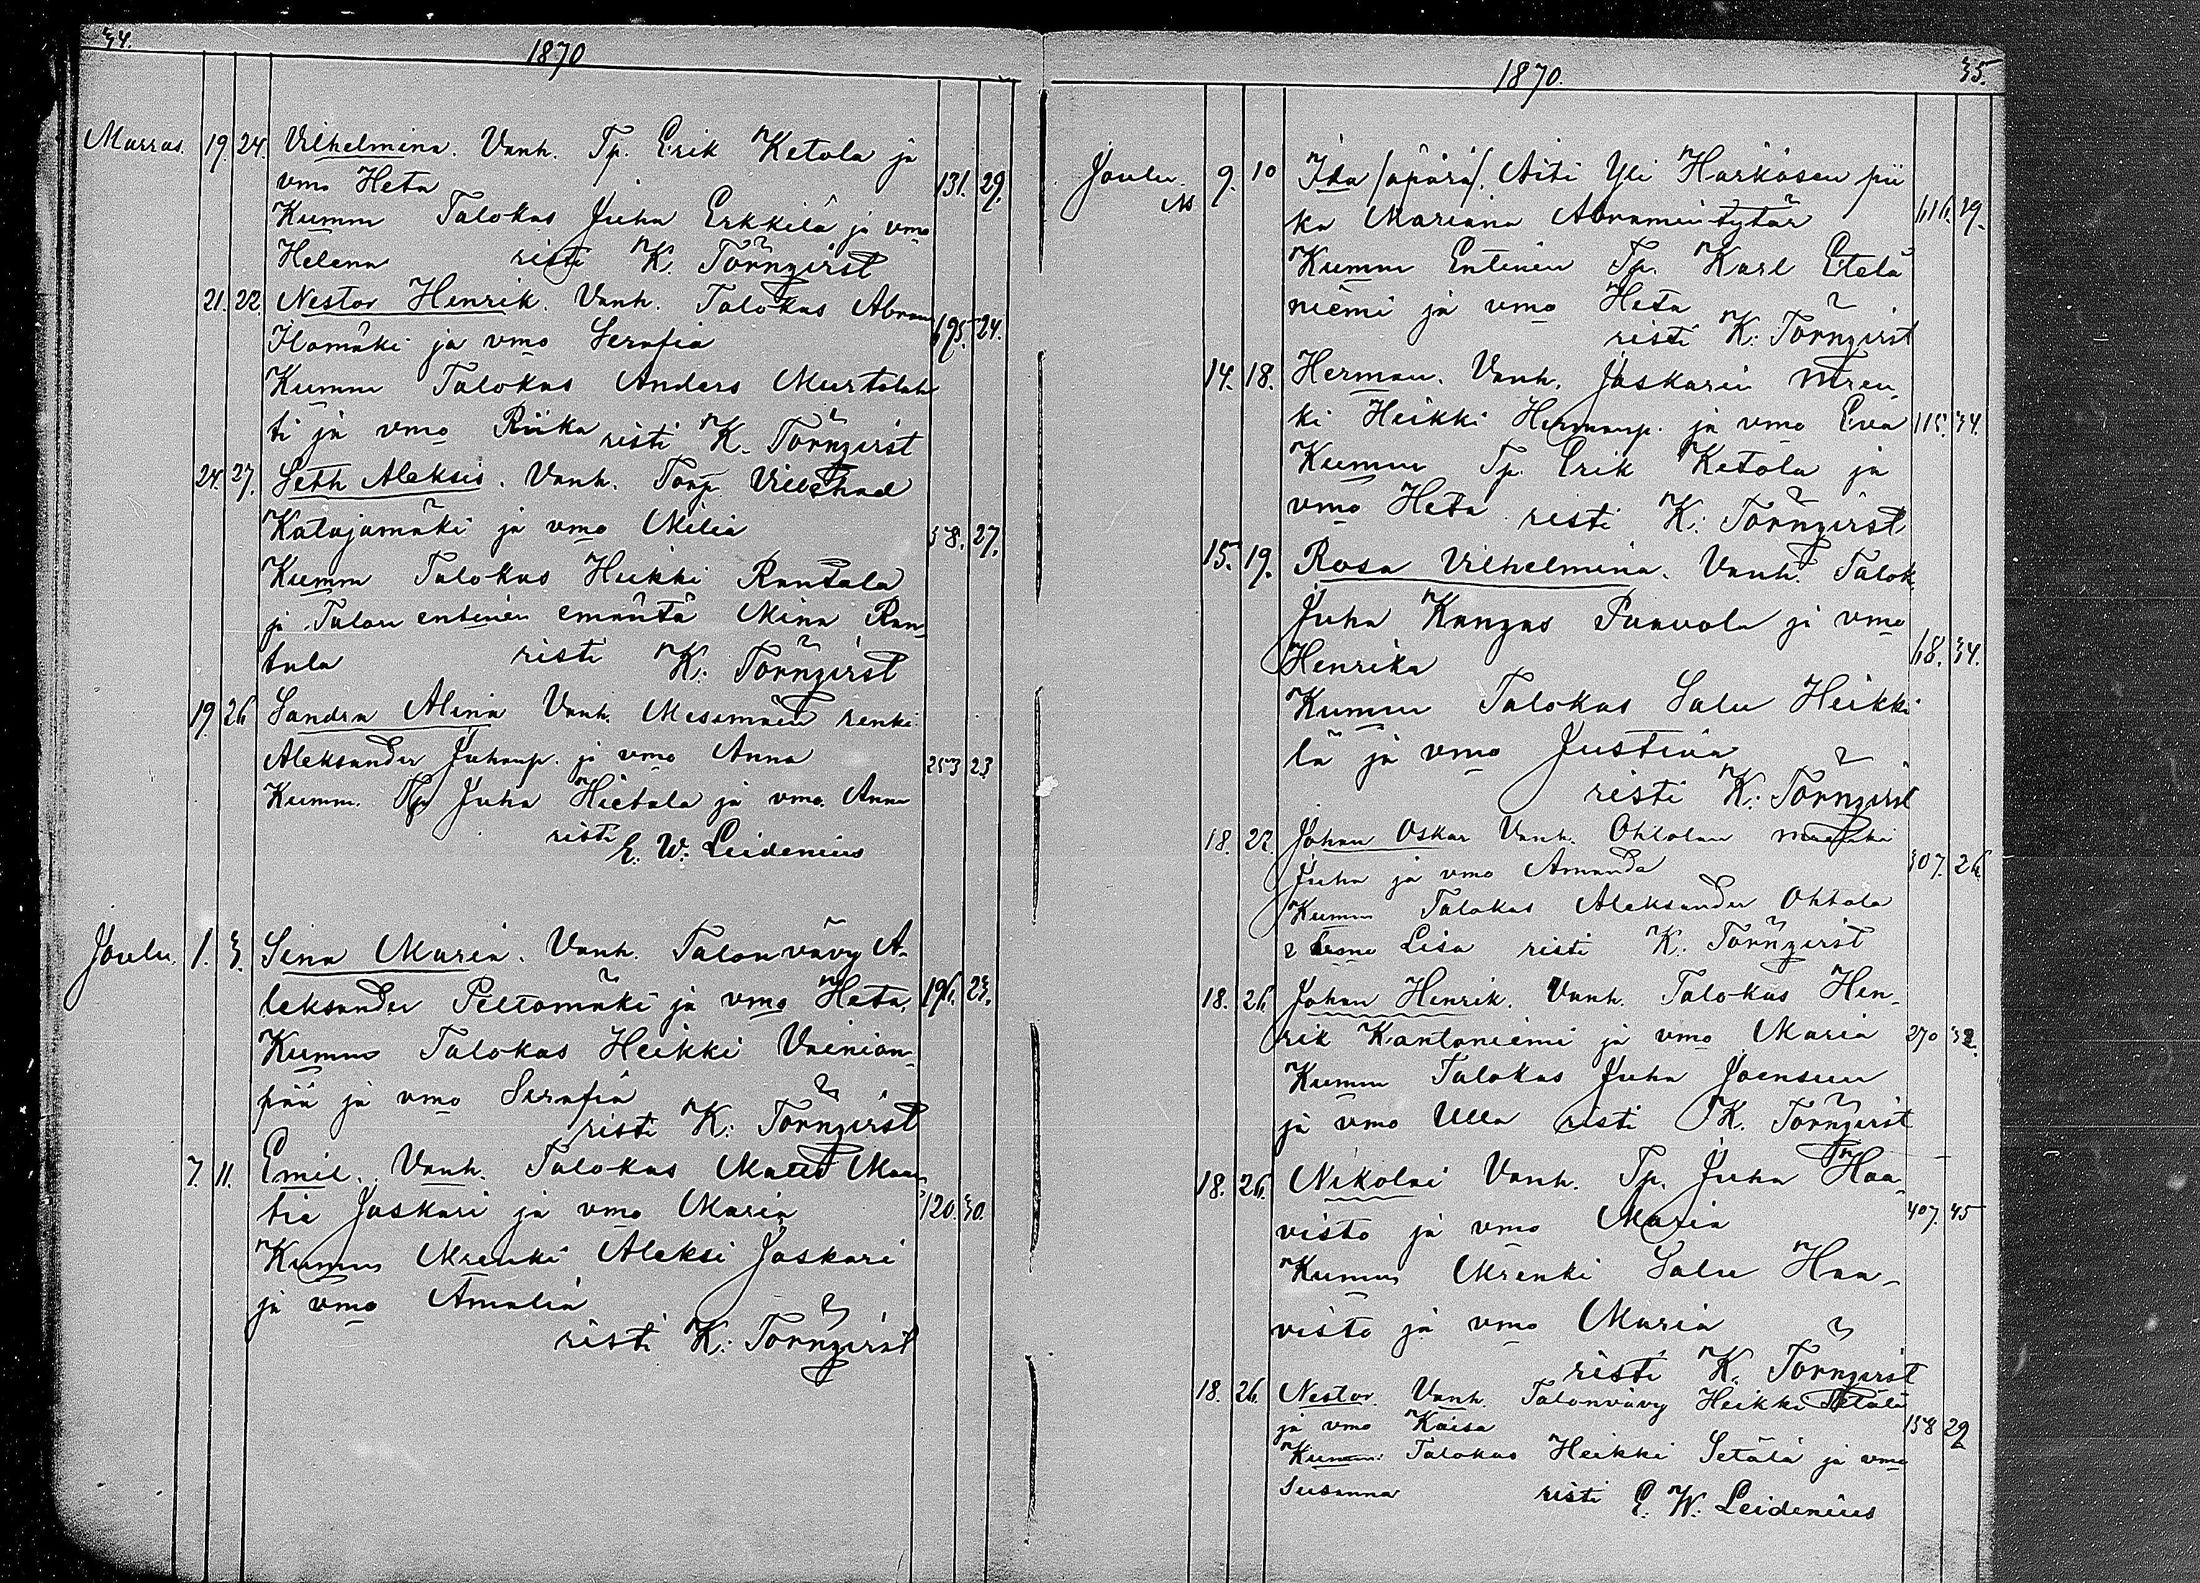 34.
1870
Marras. 19. 24. Vilhelmina. Vanh. Tp. Erik Ketola ja
vmo Heta 131. 29.
Kumm Talokas Juha Erkkilä ja vmo
Helena risti K. Törnqvist
21. 22. Nestor Henrik. Vanh. Talokas Abram
Ilomäki ja vmo Serafia 695. 24.
Kumm Talokas Anders Murtolah
ti ja vmo Riika risti K. Törnqvist
24. 27. Seth Aleksis. Vanh. Torp. Villehad
Katajamäki ja vmo Milia 58. 27.
Kumm Talokas Heikki Rantala
ja Talon entinen emäntä Mina Ran
tala risti K: Törnqvist
19 26 Sandra Alina Vanh. renki
Aleksander Juhanp. ja vmo Anna 253 23
Kumm. Tp Juha Hietala ja vmo. Anna
risti E. W. Leidenius
Joulu. 1. 3. Sina Maria. Vanh. Talonvävy A-
leksander Peltomäki ja vmo Heta. 196. 23.
Kumm Talokas Heikki Vainion-
pää ja vmo Serafia
risti K: Törnqvist
7. 11. Emil. Vanh. Talokas Matts Maa
tia Jaskari ja vmo Maria 120. 30.
Kumm Mrenki Aleksi Jaskari
ja vmo Amalia
risti K: Törnqvist
1870. 35.
Joulu. 9. 10 Ida /äpärä/. Äiti Yli Härkösen pii
ka Mariana Abramintytär 616. 29.
Kumm Entinen Tp. Karl Etelä
niemi ja vmo Heta
risti K: Törnqvist
14. 18. Herman. Vanh. Jaskarin mren
ki Heikki Hermanp. ja vmo Eva 115. 34.
Kumm Tp. Erik Ketola ja
vmo Heta risti K: Törnqvist
15. 19. Rosa Vilhelmina. Vanh. Talok.
Juha Kangas Paavola ja vmo
Henrika 68. 34.
Kumm Talokas Salu Heikki
lä ja vmo Justina
risti K: Törnqvist
18. 22. Johan Oskar Vanh. Ohtolan
Juha ja vmo Amanda 307. 26.
Kumm Talokas Aleksander Ohtola
Lisa risti K. Törnqvist
18. 26. Johan Henrik. Vanh. Talokas Hen-
rik Kantoniemi ja vmo Maria 270 32.
Kumm Talokas Juha Joensuu
ja vmo Ulla risti K. Törnqvist
18. 26. Nikolai Vanh. Tp. Juha Haa
visto ja vmo Maria 407. 45
Kumm Mrenki Salu Haa-
visto ja vmo Maria
risti K. Törnqvist
18. 26. Nestor. Vanh. Talonvävy Heikki Setälä
ja vmo Kaisa 158 29
Kumm: Talokas Heikki Setälä ja vmo
Susanna risti E. W. Leidenius